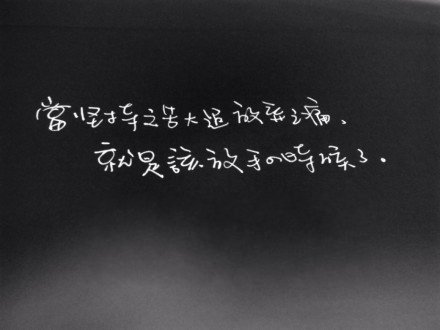 當坚持之苦大過放棄之痛、
就是該放手的時候了。